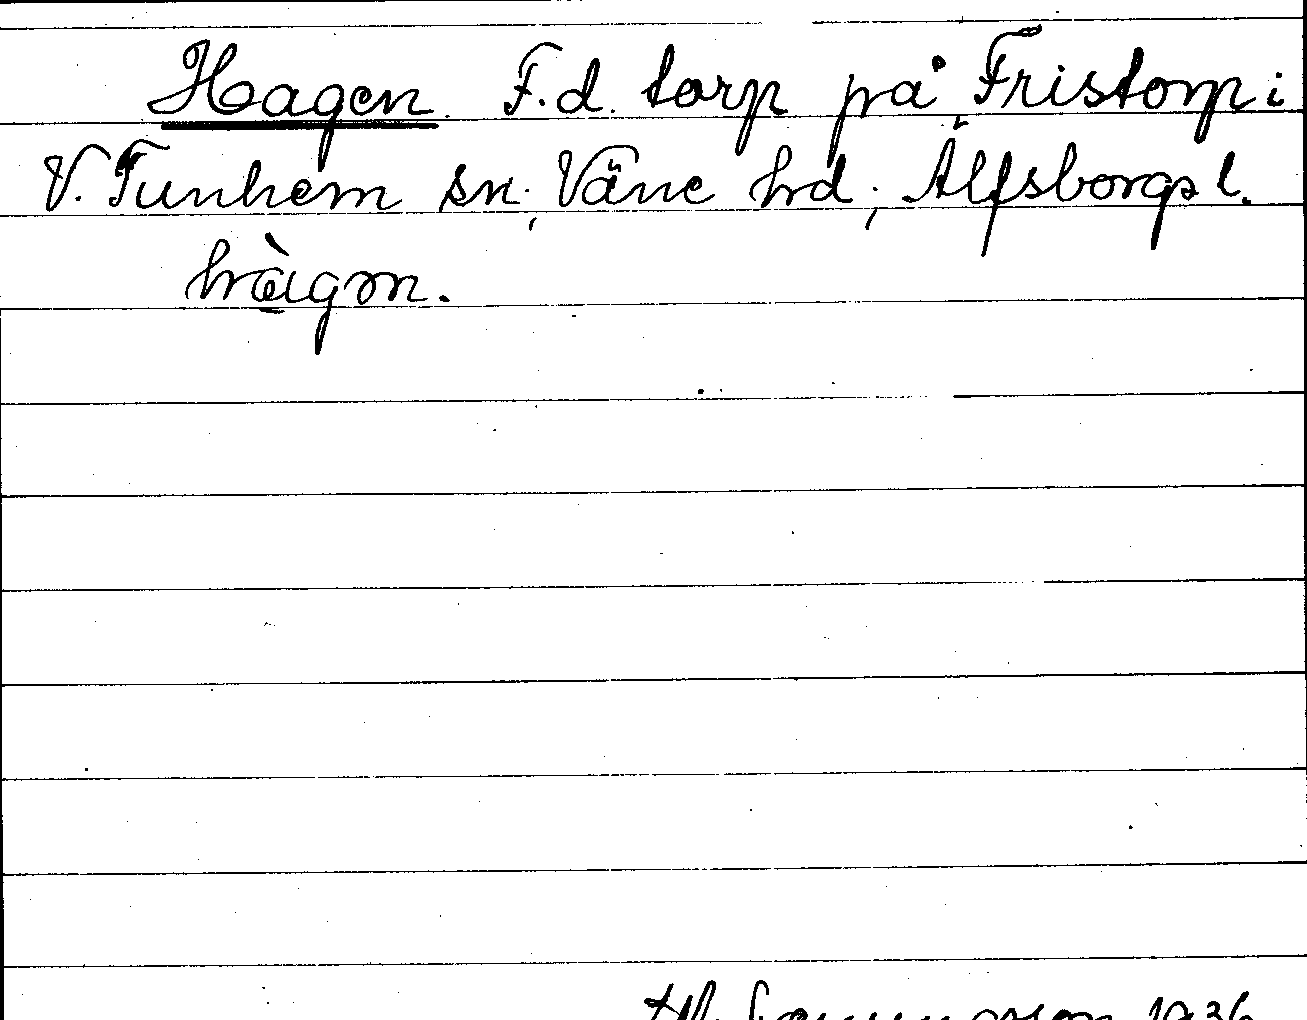 Hagen. F.d. torp på Fristorp i
V. Tunhem sn; Väne hd; Älfsborgs l.
hàgɷn.
1936